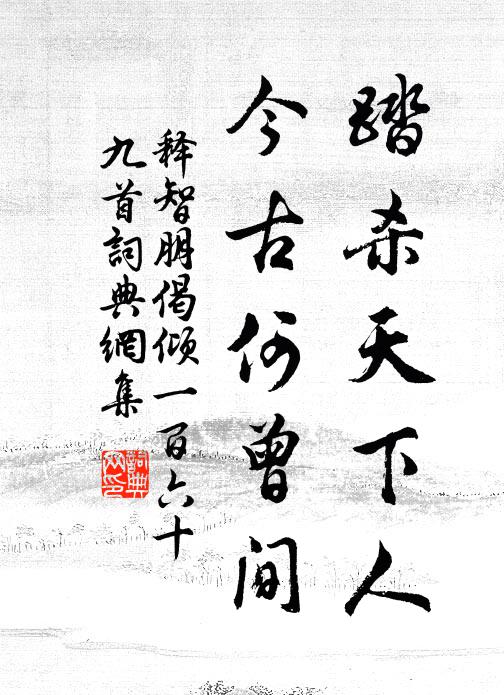 踏杀天下人
今古何曾间
释智朋偈倾一百六十
九首詞典網集
詞典
网印